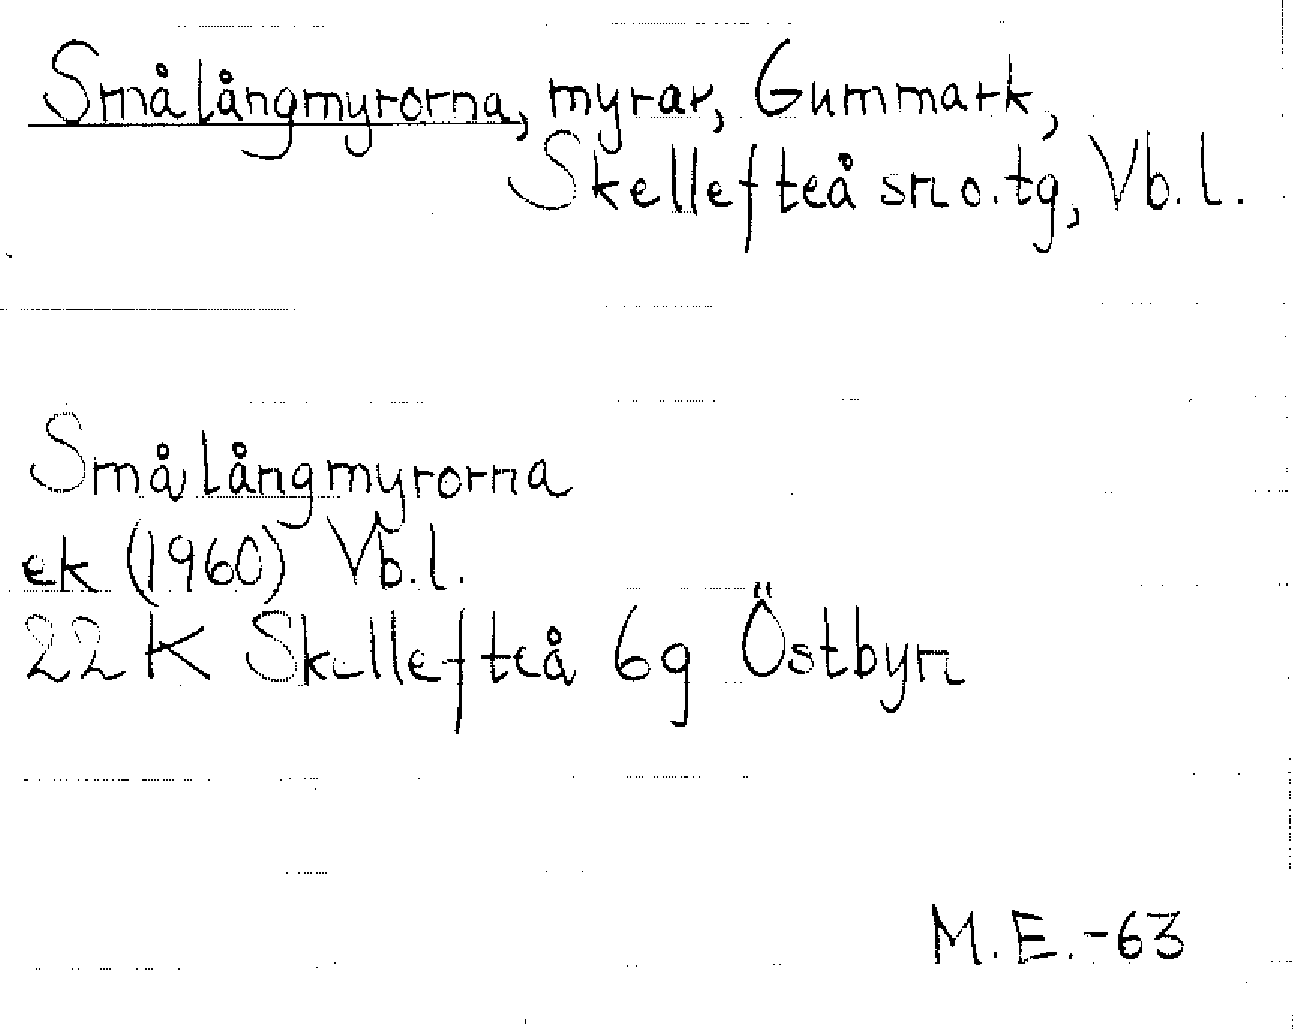 Smålångmyrorna, myrar, Gummark,
Skellefteå sn o. tg, Vb.l.
Smålångmyrorna
ek (1960) Vb.l.
22 K Skellefteå 6g Östbyn
M.E.-63